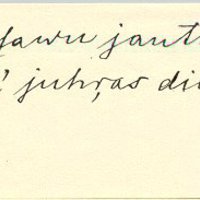 sawu jaut
juhŗas di